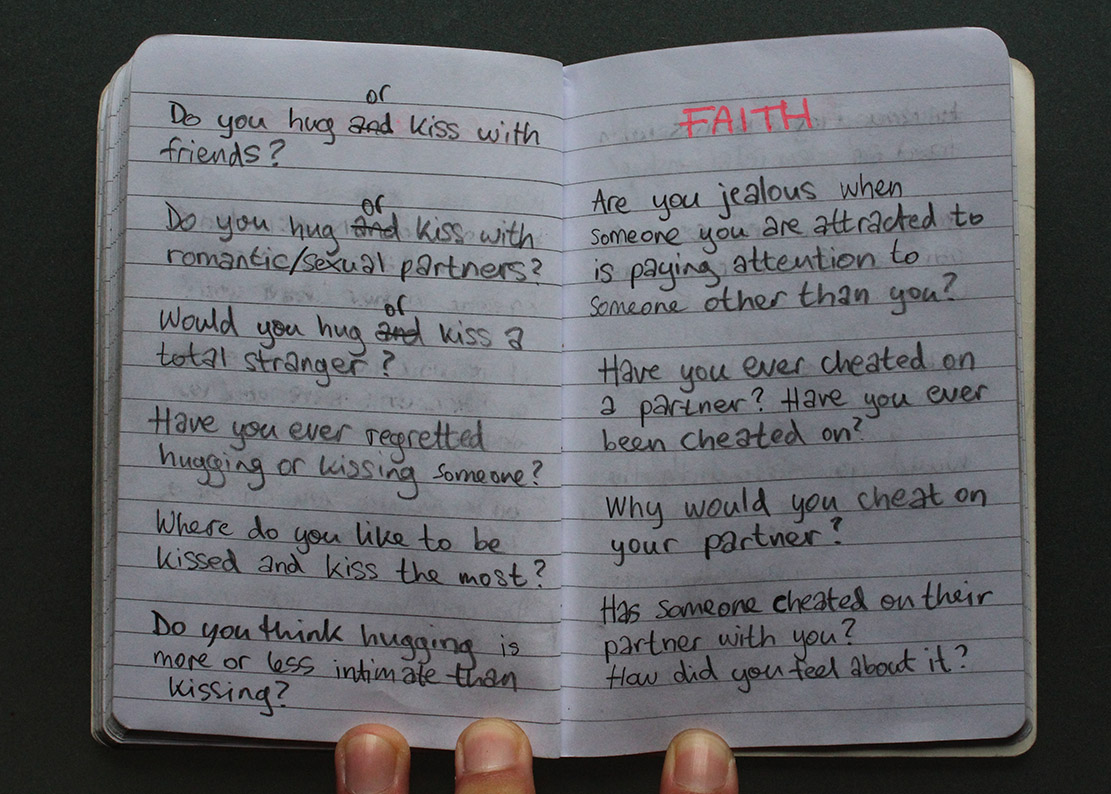 or
Do you hug and kiss with
friends?
or
Do you hug and kiss with
romantic/sexual partners?
or
Would you hug and kiss a
total stranger?
Have you ever regretted
hugging or kissing someone?
Where do you like to be
kissed and kiss the most?
Do you think hugging is
more or less intimate than
kissing?
FAITH
Are you jealous when
someone you are attracted to
is paying attention to
someone other than you?
Have you ever cheated on
a partner? Have you ever
been cheated on?
Why would you cheat on
your partner?
Has someone cheated on their
partner with you?
How did you feel about it?